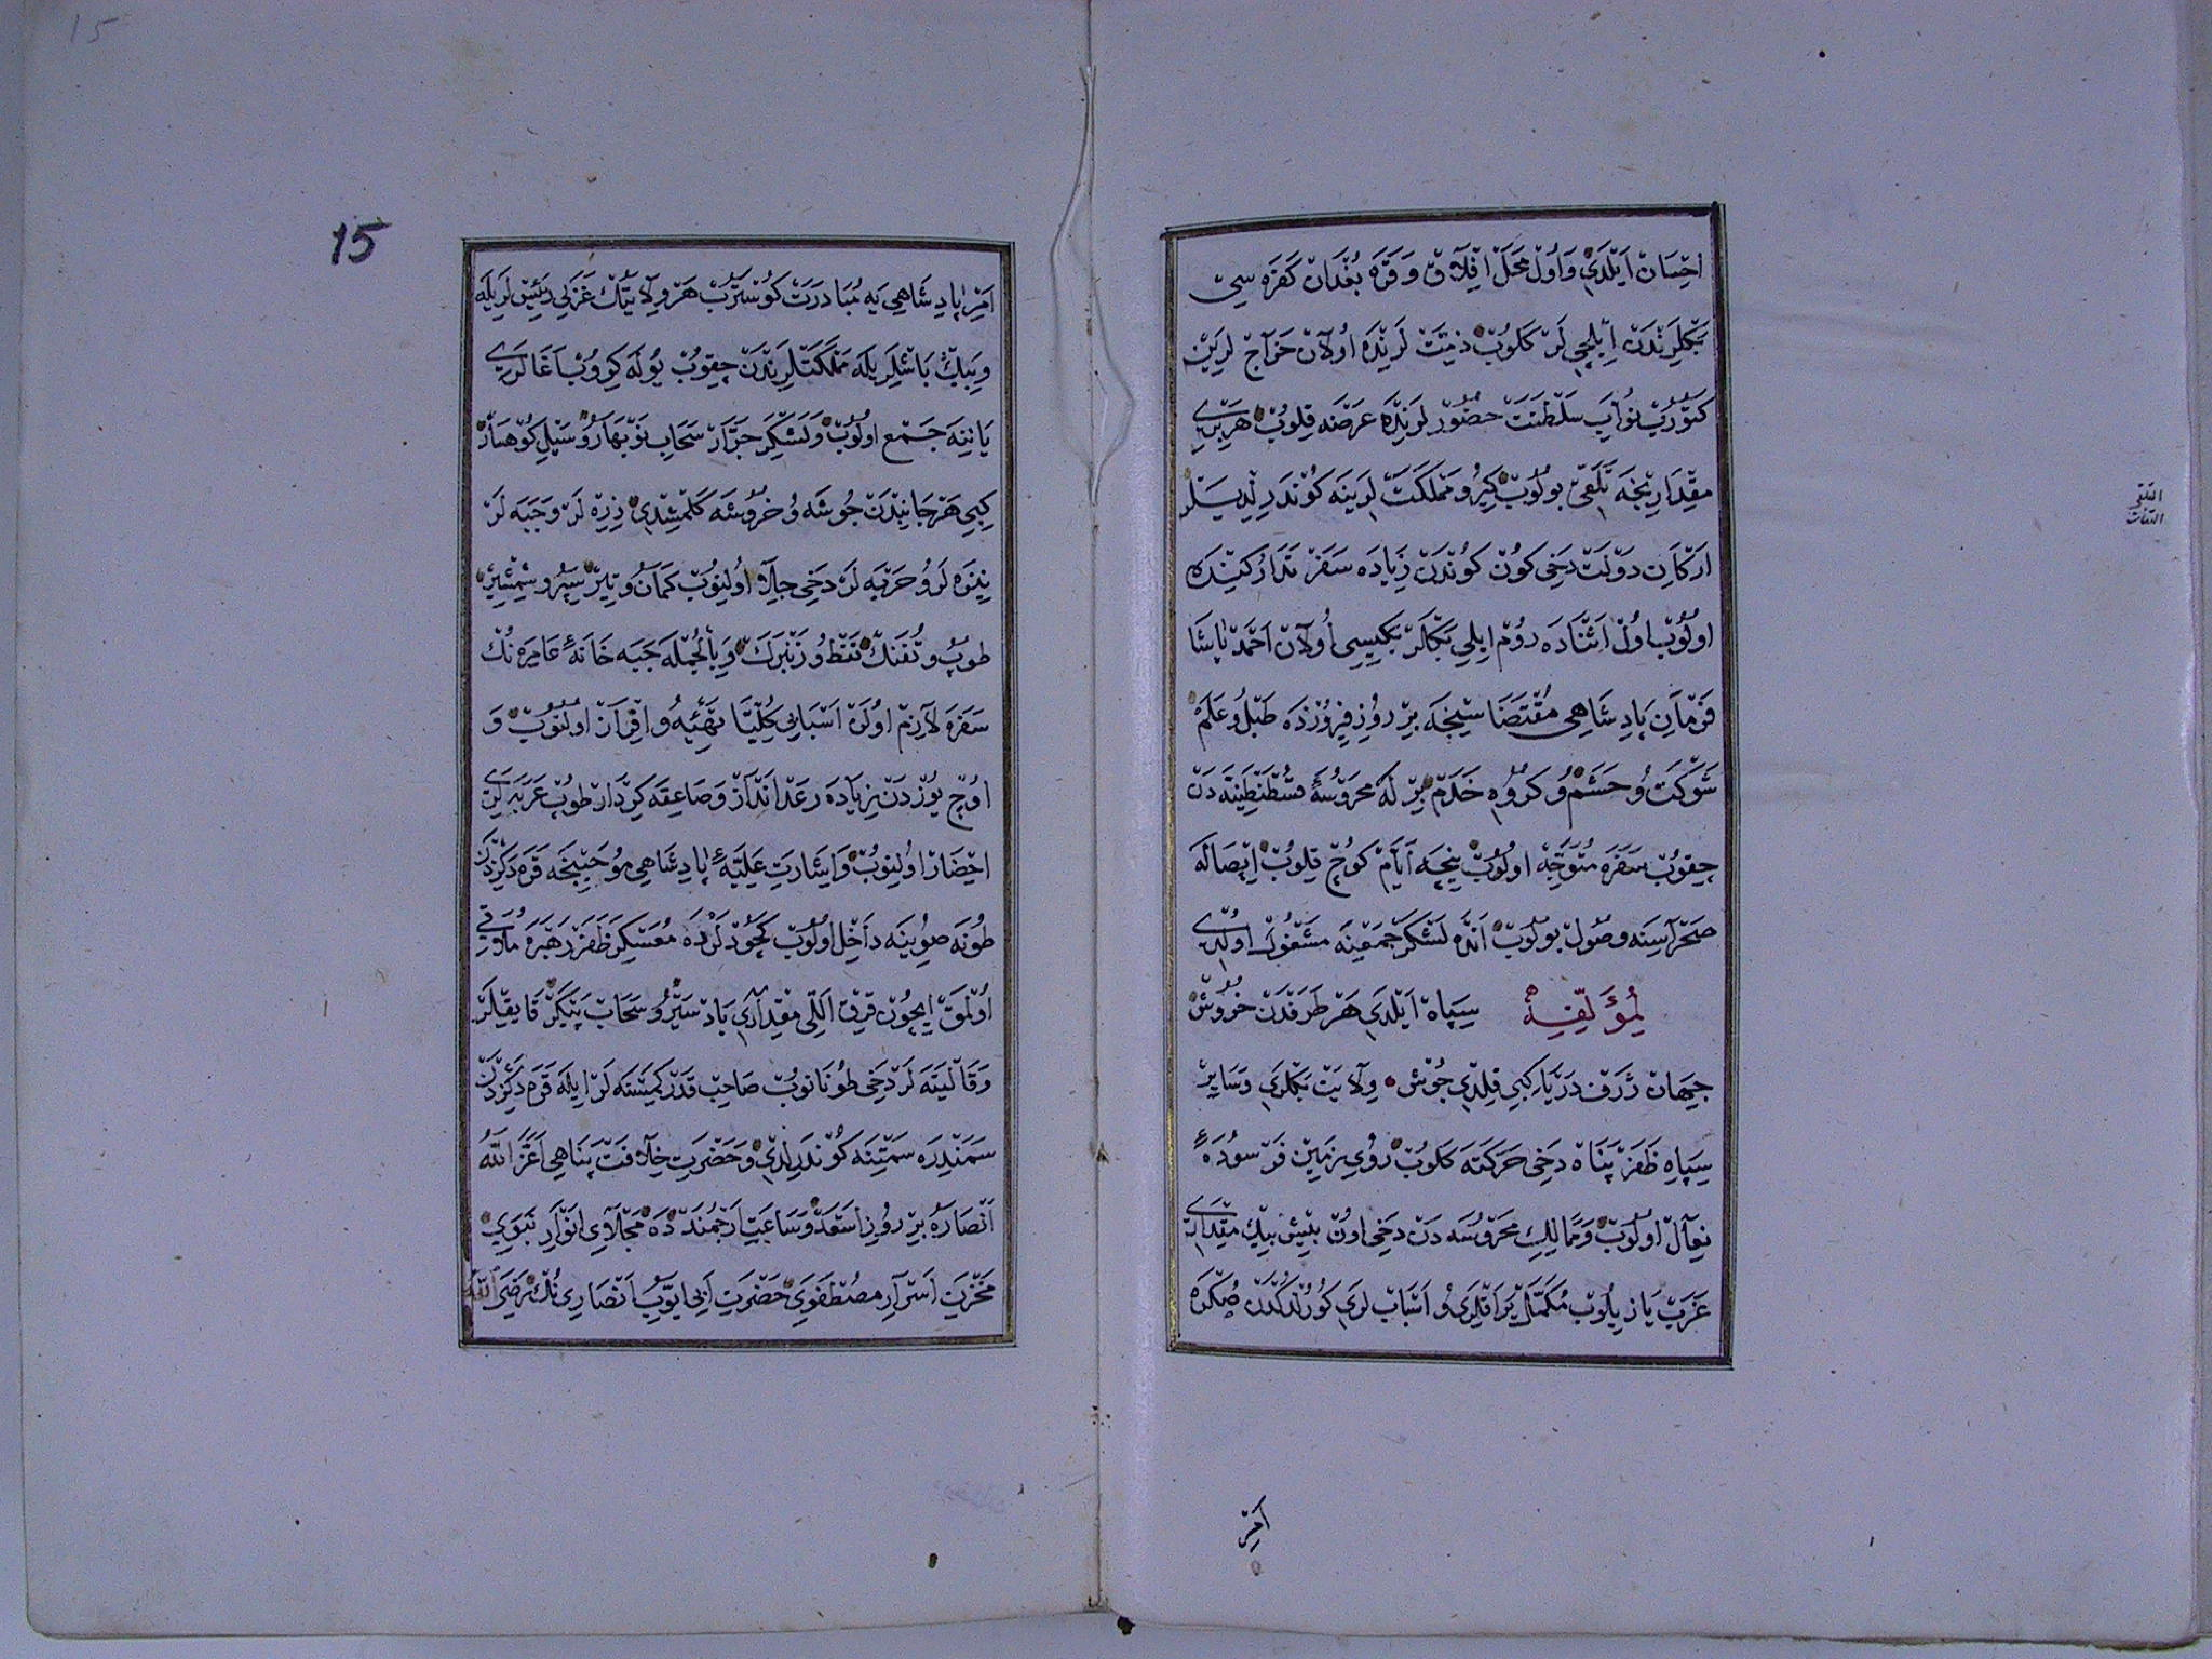 احسان ایلدی و اول محل افلاق و قره بغدان کفره سی
بکلرندن ایلچی لر کلوب ذمت لرنده اولان خراج لرین
کتورب نواب سلطنت حضور لرنده عرضه قلوب هر بری
مقدارنجه تلقی بولوب کیرو مملکت لرینه کوندرلدیلر
ارکان دولت دخی کون کوندن زیاده سفر تدارکینده
اولوب اول اثناده روم ایلی بکلر بکیسی اولان احمد پاشا
فرمان پادشاهی مقتضاسنجه بر روز فیروزده طبل و علم
شوکت و حشم و کروه خدم بر له محروسهٔ قسطنطینیه دن
چقوب سفره متوجه اولوب نیجه ایام کوچ قلوب
صحراسنه وصول بولوب انده لشکر جمعینه مشغول اولدی
لمؤلفه سپاه ایلدی هر طرفدن خروش
جهان ژرف دریا کبی قلدی جوش ولایت بکلری و سایر
سپاه ظفر پناه دخی حرکته کلوب روی زمین فرسودهٔ
نعال اولوب و ممالک محروسه دن دخی اون بیش بیک مقداری
عزب یازیلوب مکمل یراقلری و اسباب لری کورلدکدن صکره
امر
التلقی
التفات
15
15
امر پادشاهی یه مبادرت کوسترب هر ولایتک عزبی رئیس لریله
و بیک باشلریله مملکتلرندن چقوب یوله کروب اغالری
یاننه جمع اولوب و لشکر جرار سحاب نوبهار و سیل کوهسار
کبی هر جانبدن جوشه و خروشه کلمشدی زره لر و جبه لر
نیزه لر و حربه لر دخی جلا اولنوب کمان و تیر سپر و شمشیر
طوپ و تفنک نفط و زنبرک و بالجمله جبه خانهٔ عامره نک
سفره لازم اولن اسبابی کلیا تهیئه و اقران اولنوب و
اوچ یوزدن زیاده رعد انداز و صاعقه کردار طوپ عربه لرن
احضار اولنوب و اشارت علیهٔ پادشاهی موجبنجه قره دکزدن
طونه صوینه داخل اولوب کچودلرده معسکر ظفر رهبره ملاقی
اولمق ایچون قرق اللی مقداری باد سیر و سحاب پیکر قایقلر
و قالیته لر دخی طونانوب صاحب قدر کمسنه لر ایله قره دکزدن
سمندره سمتنه کوندرلدی و حضرت خلافت پناهی اعز الله
انصاره بر روز اسعد و ساعت ارجمند ده مجلای انوار نبوی
مخزن اسرار مصطفوی حضرت ابی ایوب انصاری نک رضی الله